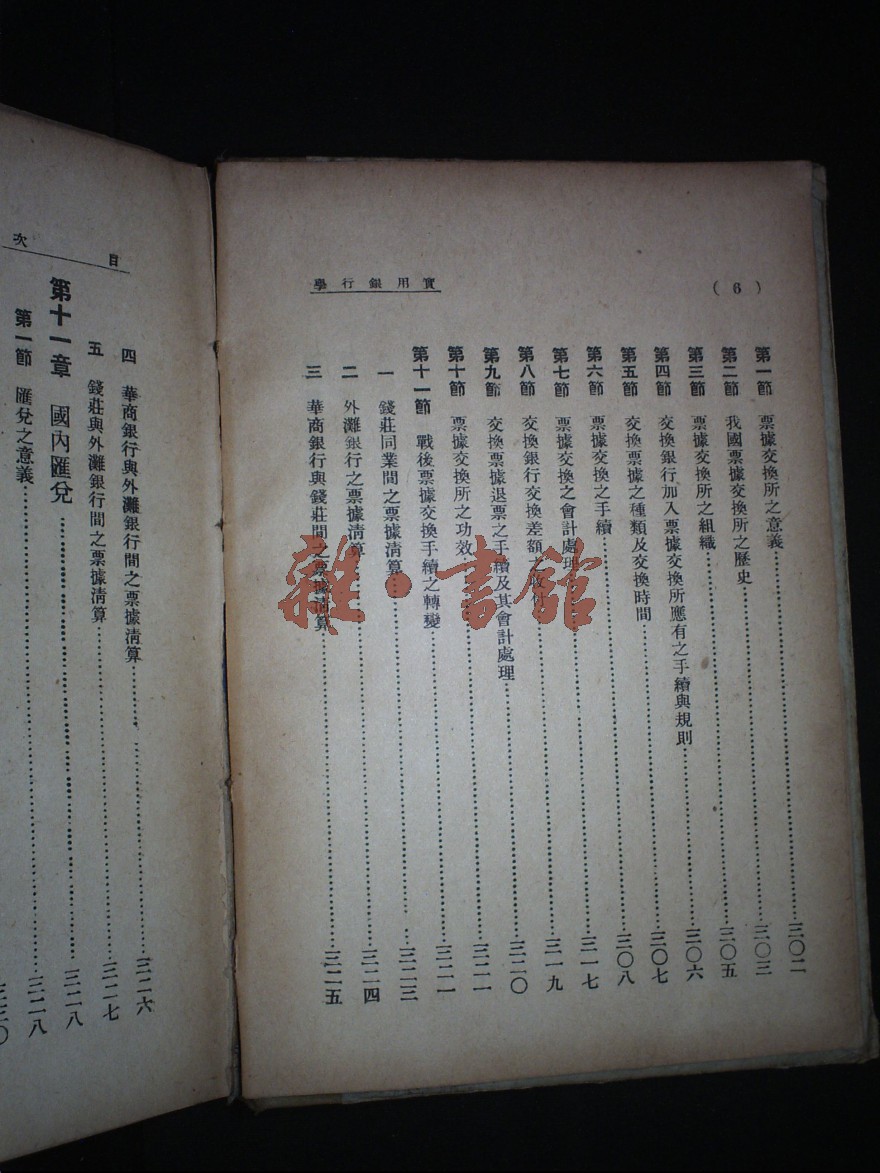 (6)
實用銀行學
第一節 票據交換所之意義……三〇二
第二節 我國票據交換所之歷史……三〇三
第三節 票據交換所之組織……三〇五
第四節 交換銀行加入票據交換所應有之手續與規則……三〇六
第五節 交換票據之種類及交換時間……三〇七
第六節 票據交換之手續……三〇八
第七節 票據交換之會計處理……三一七
第八節 交換銀行交換差額之收付……三一九
第九節 交換票據退票之手續及其會計處理……三二〇
第十節 票據交換所之功效……三二一
第十一節 戰後票據交換手續之轉變……三二一
一 錢莊同業間之票據清算……三二三
二 外灘銀行之票據清算……三二四
三 華商銀行與錢莊間之票據清算……三二五
目次
四 華商銀行與外灘銀行間之票據清算……三二六
五 錢莊與外灘銀行間之票據清算……三二七
第十一章 國內匯兌……三二八
第一節 匯兌之意義……三二八
三三〇
雜·書館